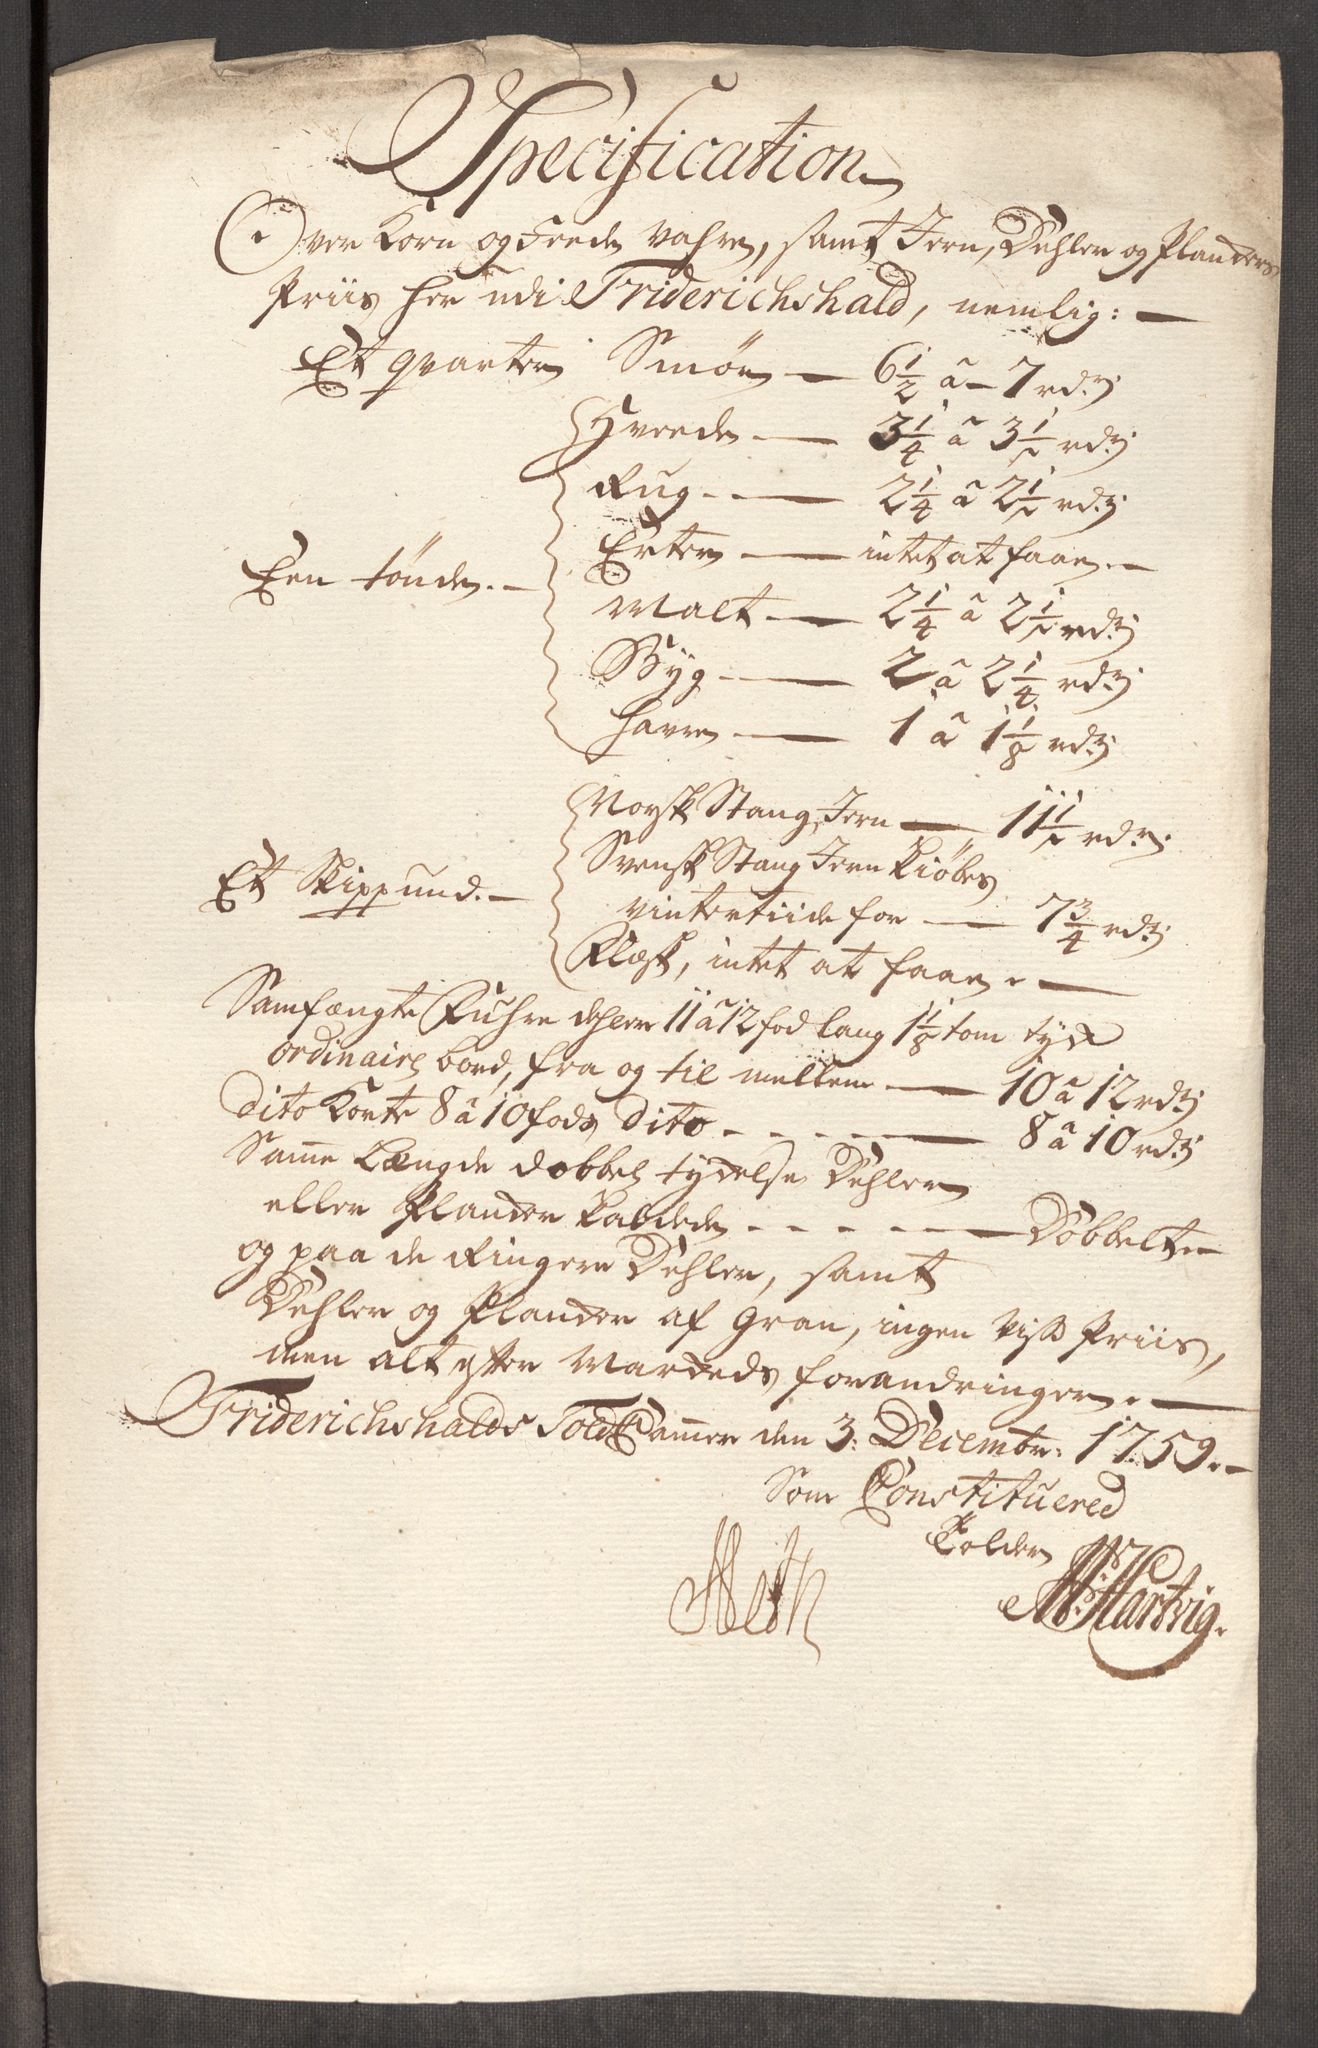 Specification
Over Korn og Feede Vahre, samt Jern, Dehler og Planckers
Priis her udi Friderichshald, nemlig: —
Et qvarteer Smør — 6 1/2 â 7 rdr:
Hveede — 3 1/4 â 3 1/2 rdr:
Rug — 2 1/4 â 2 1/2 rdr:
Erter — intet at faae. —
Een tönde. — Malt — 2 1/4 â 2 1/2 rdr:
Byg — 2 â 2 1/4 rdr:
Havre — 1 â 1 1/8 rdr:
Norsk Stang Jern — 11 1/2 rdr:
Svensk Stang Jern Kiöbes
Et Skippund. — vintertiide for — 7 3/4 rdr:
Flesk, intet at faae. —
Samfængte Fuhre dehler 11 â 12 fod lang 1 1/8 tom tyck
ordinaire bord, fra og til mellem — 10 â 12 rdr:
dito Korte 8 â 10 fods dito — 8 â 10 rdr:
Samme Længde dobbel tyckelse Dehler
eller Plancker kaldede — Dobbelt. —
og paa de Ringere Dehler, samt
Dehler og Plancker af Gran, ingen viss Priis,
men alt efter Marckeds forandringer. —
Friderichshalds Told Cammer den 3: Decembr: 1759. —
Som Constituered
Tolder
Hartvig.